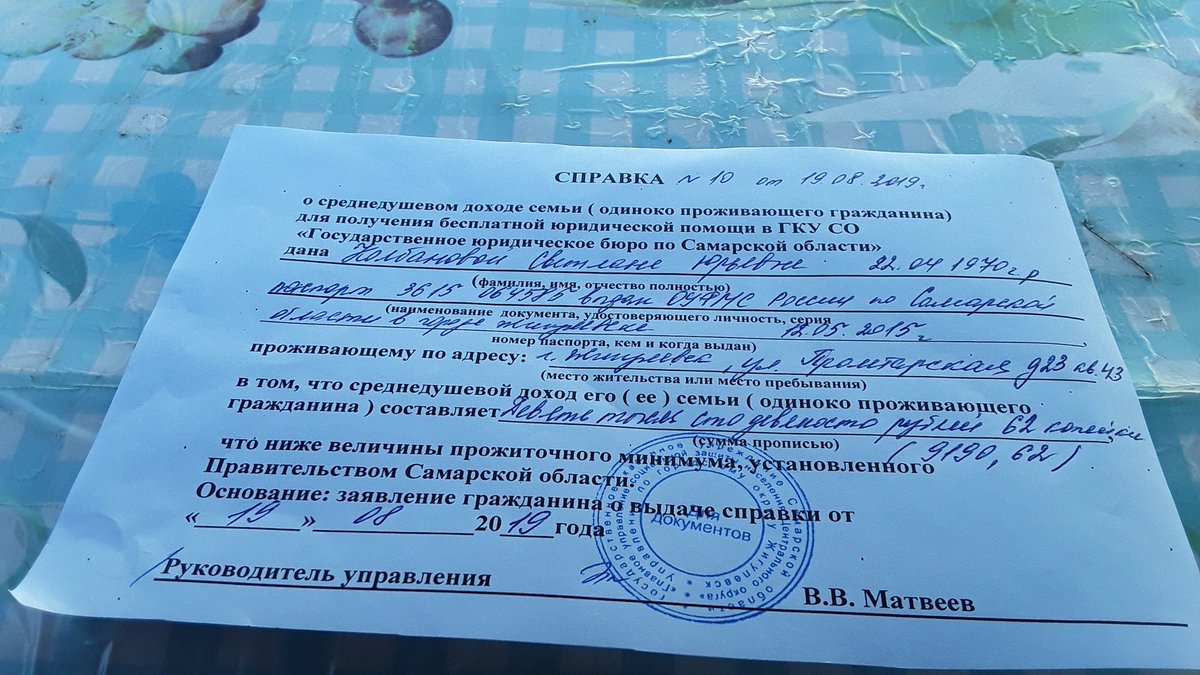 СПРАВКА N 10 от 19.08.2019г
о среднедушевом доходе семьи ( одиноко проживающего гражданина)
для получения бесплатной юридической помощи в ГКУ СО
«Государственное юридическое бюро по Самарской области»
дана Колбановой Светлане Юрьевне 22.04 1970г.р
(фамилия, имя, отчество полностью)
паспорт 3615 064585 выдан ОУФМС России по Самарской
(наименование документа, удостоверяющего личность, серия
области в городе Жигулевске 12.05.2015г
номер паспорта, кем и когда выдан)
проживающему по адресу: г. Жигулевск, ул. д23 кв 43
(место жительства или место пребывания)
в том, что среднедушевой доход его ( ее ) семьи ( одиноко проживающего
гражданина ) составляет Девять тысяч сто девяносто рублей 62 копейки
(сумма прописью) (9190,62)
что ниже величины прожиточного минимума, установленного
Правительством Самарской области.
Основание: заявление гражданина о выдаче справки от
« 19 » 08 2019 года
Для документов
Руководитель управления В.В. Матвеев